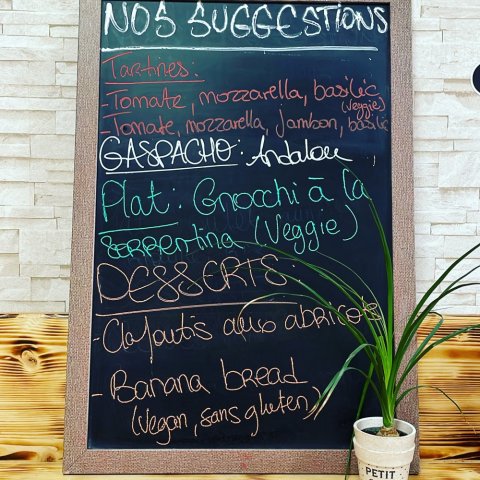 NOS SUGGESTIONS
Tartines:
-Tomate, mozzarella, basilic
(veggie)
-Tomate, mozzarella, jambon, basilic
GASPACHO: Andalou
Plat: Gnocchi à la
sorrentina (Veggie)
DESSERTS:
-Clafoutis aux abricots
-Banana bread
(Vegan, sans gluten)
PETIT